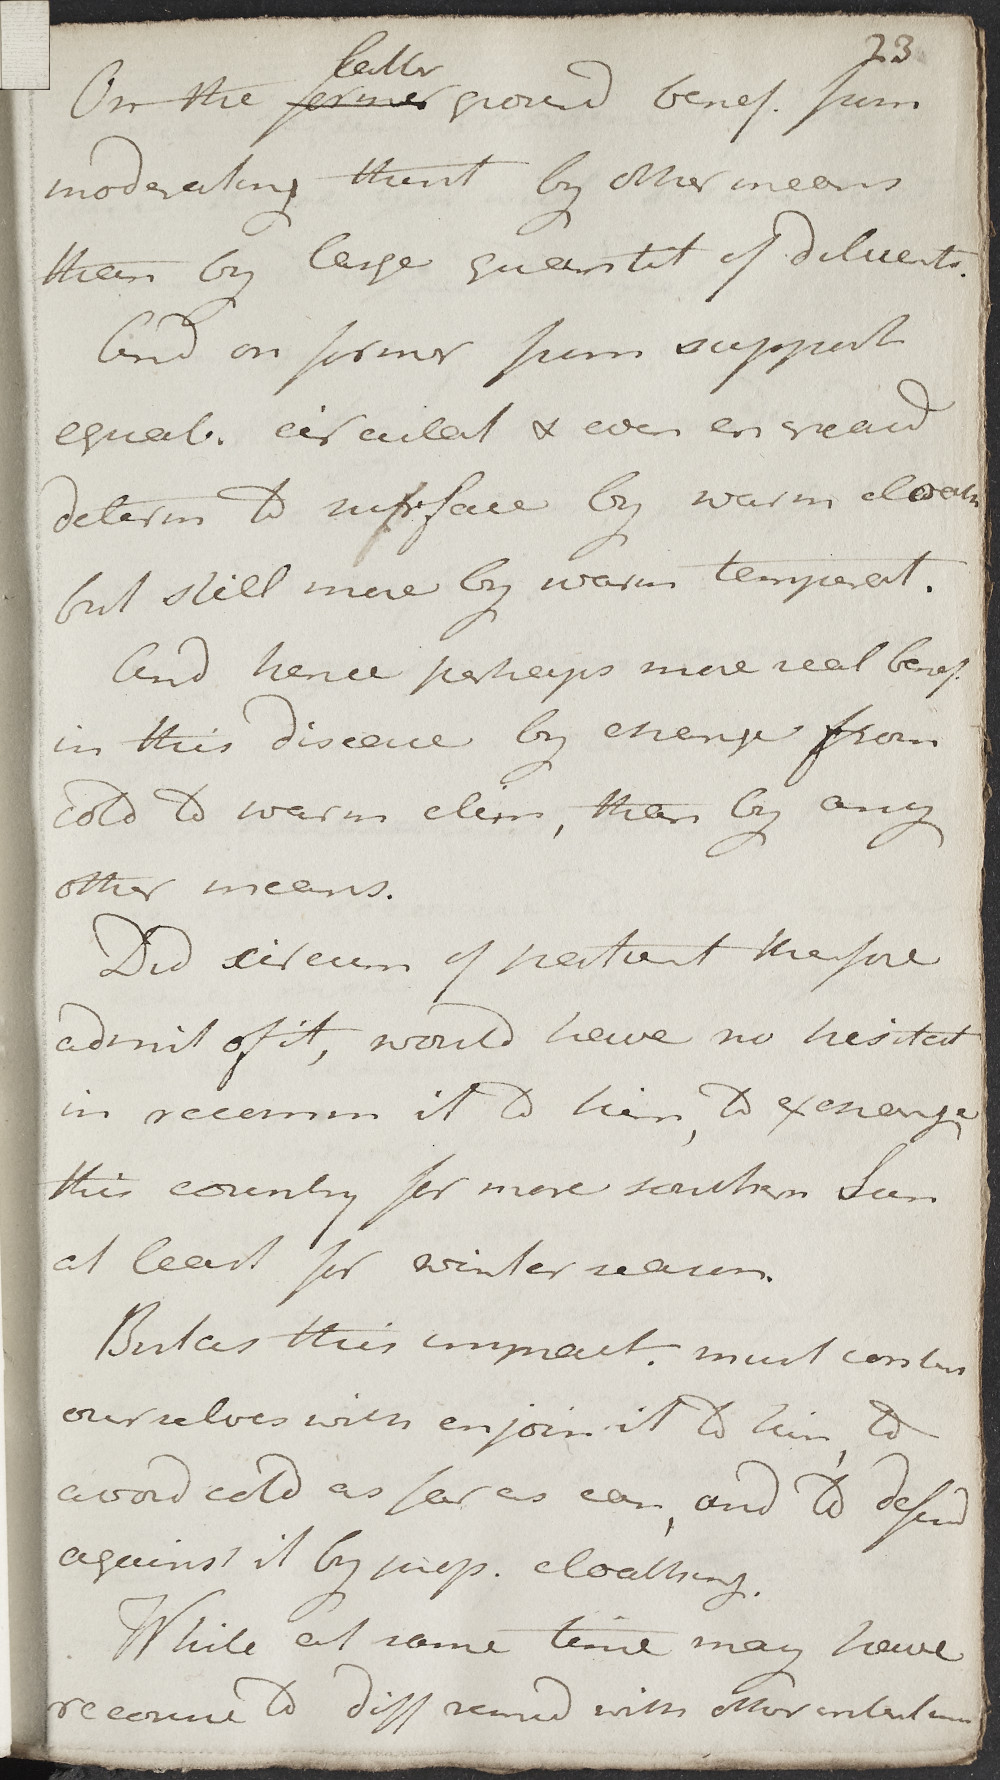 23
latter
On the former ground benef. from
moderating thirst by other means
than by large quantit of diluents.
And on former from support
equab. circulat & even increased
determ to surface by warm cloath
but still more by warm temperat.
And hence perhaps more real benef.
in this disease by change from
cold to warm clim, than by any
other means.
Did circum of patient therefore
admit of it, would have no hesitat
in recomm it to him, to exchange
this country for more southern Sun
at least for winter season.
But as this impract. must content
ourselves with enjoin it to him, to
avoid cold as far as can, and to defend
against it by prop. cloathing.
While at same time may have
recourse to diff remed with other intentions